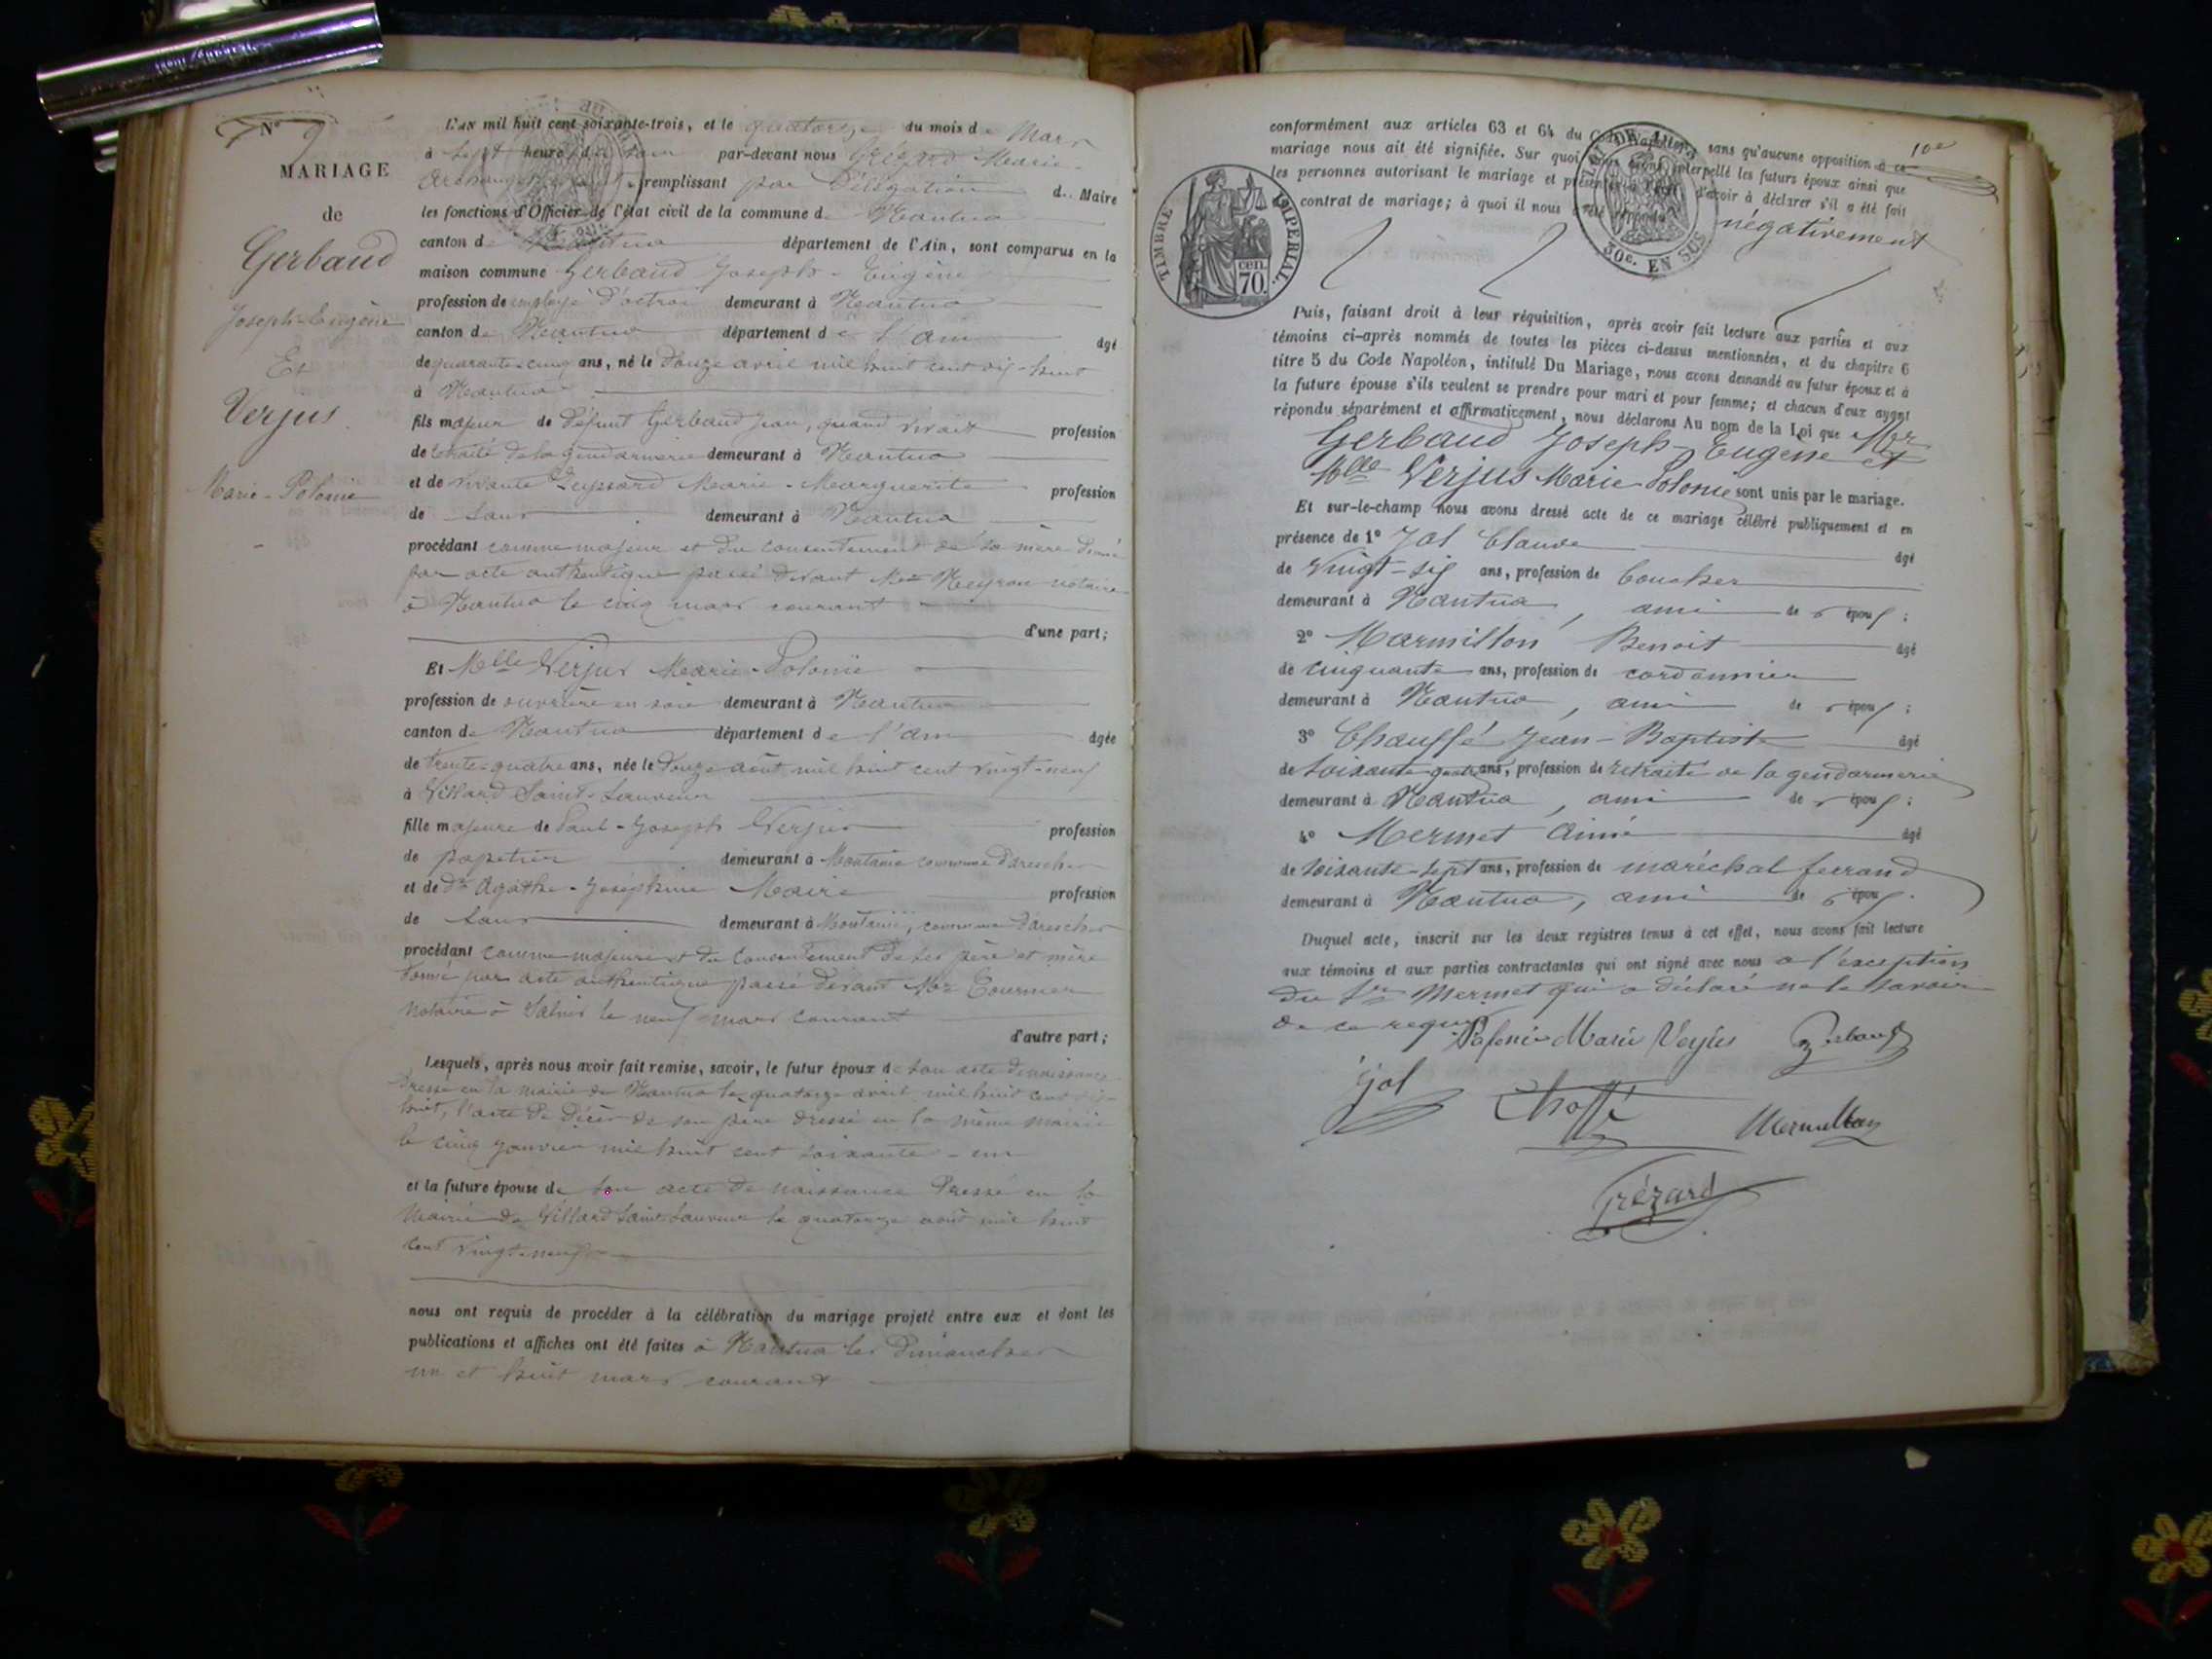 N° 9
MARIAGE
de
Gerbaud
Joseph-Eugène
Et
Verjus
Marie-Polonie
L'AN mil huit cent soixante-trois, et le quatorze du mois de Mars
à sept heures du soir par-devant nous Grézard Marie-
remplissant par Délégation d.. Maire
les fonctions d'Officier de l'état civil de la commune de Nantua
canton de Nantua département de l'Ain, sont comparus en la
maison commune Gerbaud Joseph-Eugène
profession de employé d'octroi demeurant à Nantua
canton de Nantua département de l'ain âgé
de quarante-cinq ans, né le douze avril mil huit cent dix-huit
à Nantua
fils majeur de défunt Gerbaud Jean, quand vivait profession
de retraité de la gendarmerie demeurant à Nantua
et de vivante Marie-Marguerite profession
de sans demeurant à Nantua
procédant comme majeur et du consentement de sa mère donné
par acte authentique passé devant Me Neyron notaire
à Nantua le cinq mars courant
d'une part;
Et Melle Verjus Marie-Polonie
profession de ouvrière en soie demeurant à Nantua
canton de Nantua département de l'ain âgée
de trente-quatre ans, née le douze août mil huit cent vingt-neuf
à Villard Saint-Sauveur
fille majeure de Paul-Joseph Verjus profession
de papetier demeurant à commune d'aresches
et de De Agathe-Joséphine Maire profession
de sans demeurant à commune d'aresches
procédant comme majeure et du consentement de ses père et mère
donné par acte authentique passé devant Me Tournier
notaire à Salins le neuf mars courant
d'autre part;
Lesquels, après nous avoir fait remise, savoir, le futur époux de son acte de naissance
dressé en la mairie de Nantua le quatorze avril mil huit cent dix-
huit, l'acte de décès de son père dressé en la même mairie
le cinq janvier mil huit cent soixante-un
et la future épouse de son acte de naissance dressé en la
mairie de Villard Saint Sauveur le quatorze août mil huit
cent vingt-neuf
nous ont requis de procéder à la célébration du mariage projeté entre eux et dont les
publications et affiches ont été faites à Nantua les Dimanches
un et huit mars courant
10e
conformément aux articles 63 et 64 du Code Napoléon, sans qu'aucune opposition à ce
mariage nous ait été signifiée. Sur quoi nous avons interpellé les futurs époux ainsi que
les personnes autorisant le mariage et présentes à l'acte d'avoir à déclarer s'il a été fait
contrat de mariage; à quoi il nous a été répondu négativement
TIMBRE IMPERIAL.
cen.
70.
30c. EN SUS
Puis, faisant droit à leur réquisition, après avoir fait lecture aux parties et aux
témoins ci-après nommés de toutes les pièces ci-dessus mentionnées, et du chapitre 6
titre 5 du Code Napoléon, intitulé Du Mariage, nous avons demandé au futur époux et à
la future épouse s'ils veulent se prendre pour mari et pour femme; et chacun d'eux ayant
répondu séparément et affirmativement, nous déclarons Au nom de la Loi que Mr
Gerbaud Joseph-Eugène et
Melle Verjus Marie Polonie sont unis par le mariage.
Et sur-le-champ nous avons dressé acte de ce mariage célébré publiquement et en
présence de 1° Jol Claude âgé
de vingt-six ans, profession de boucher
demeurant à Nantua, ami de r époux;
2° Marmillon Benoit âgé
de cinquante ans, profession de cordonnier
demeurant à Nantua, ami de r époux;
3° Chauffé Jean-Baptiste âgé
de soixante-quatre ans, profession de retraité de la gendarmerie
demeurant à Nantua, ami de r époux;
4° Mermet Aimé âgé
de soixante-sept ans, profession de maréchal ferrand
demeurant à Nantua, ami de r époux.
Duquel acte, inscrit sur les deux registres tenus à cet effet, nous avons fait lecture
aux témoins et aux parties contractantes qui ont signé avec nous à l'exception
du Sr Mermet qui a déclaré ne le savoir
de ce requis
Polonie Marie Verjus Gerbaud
Jol Choffé Marmillon
Grézard